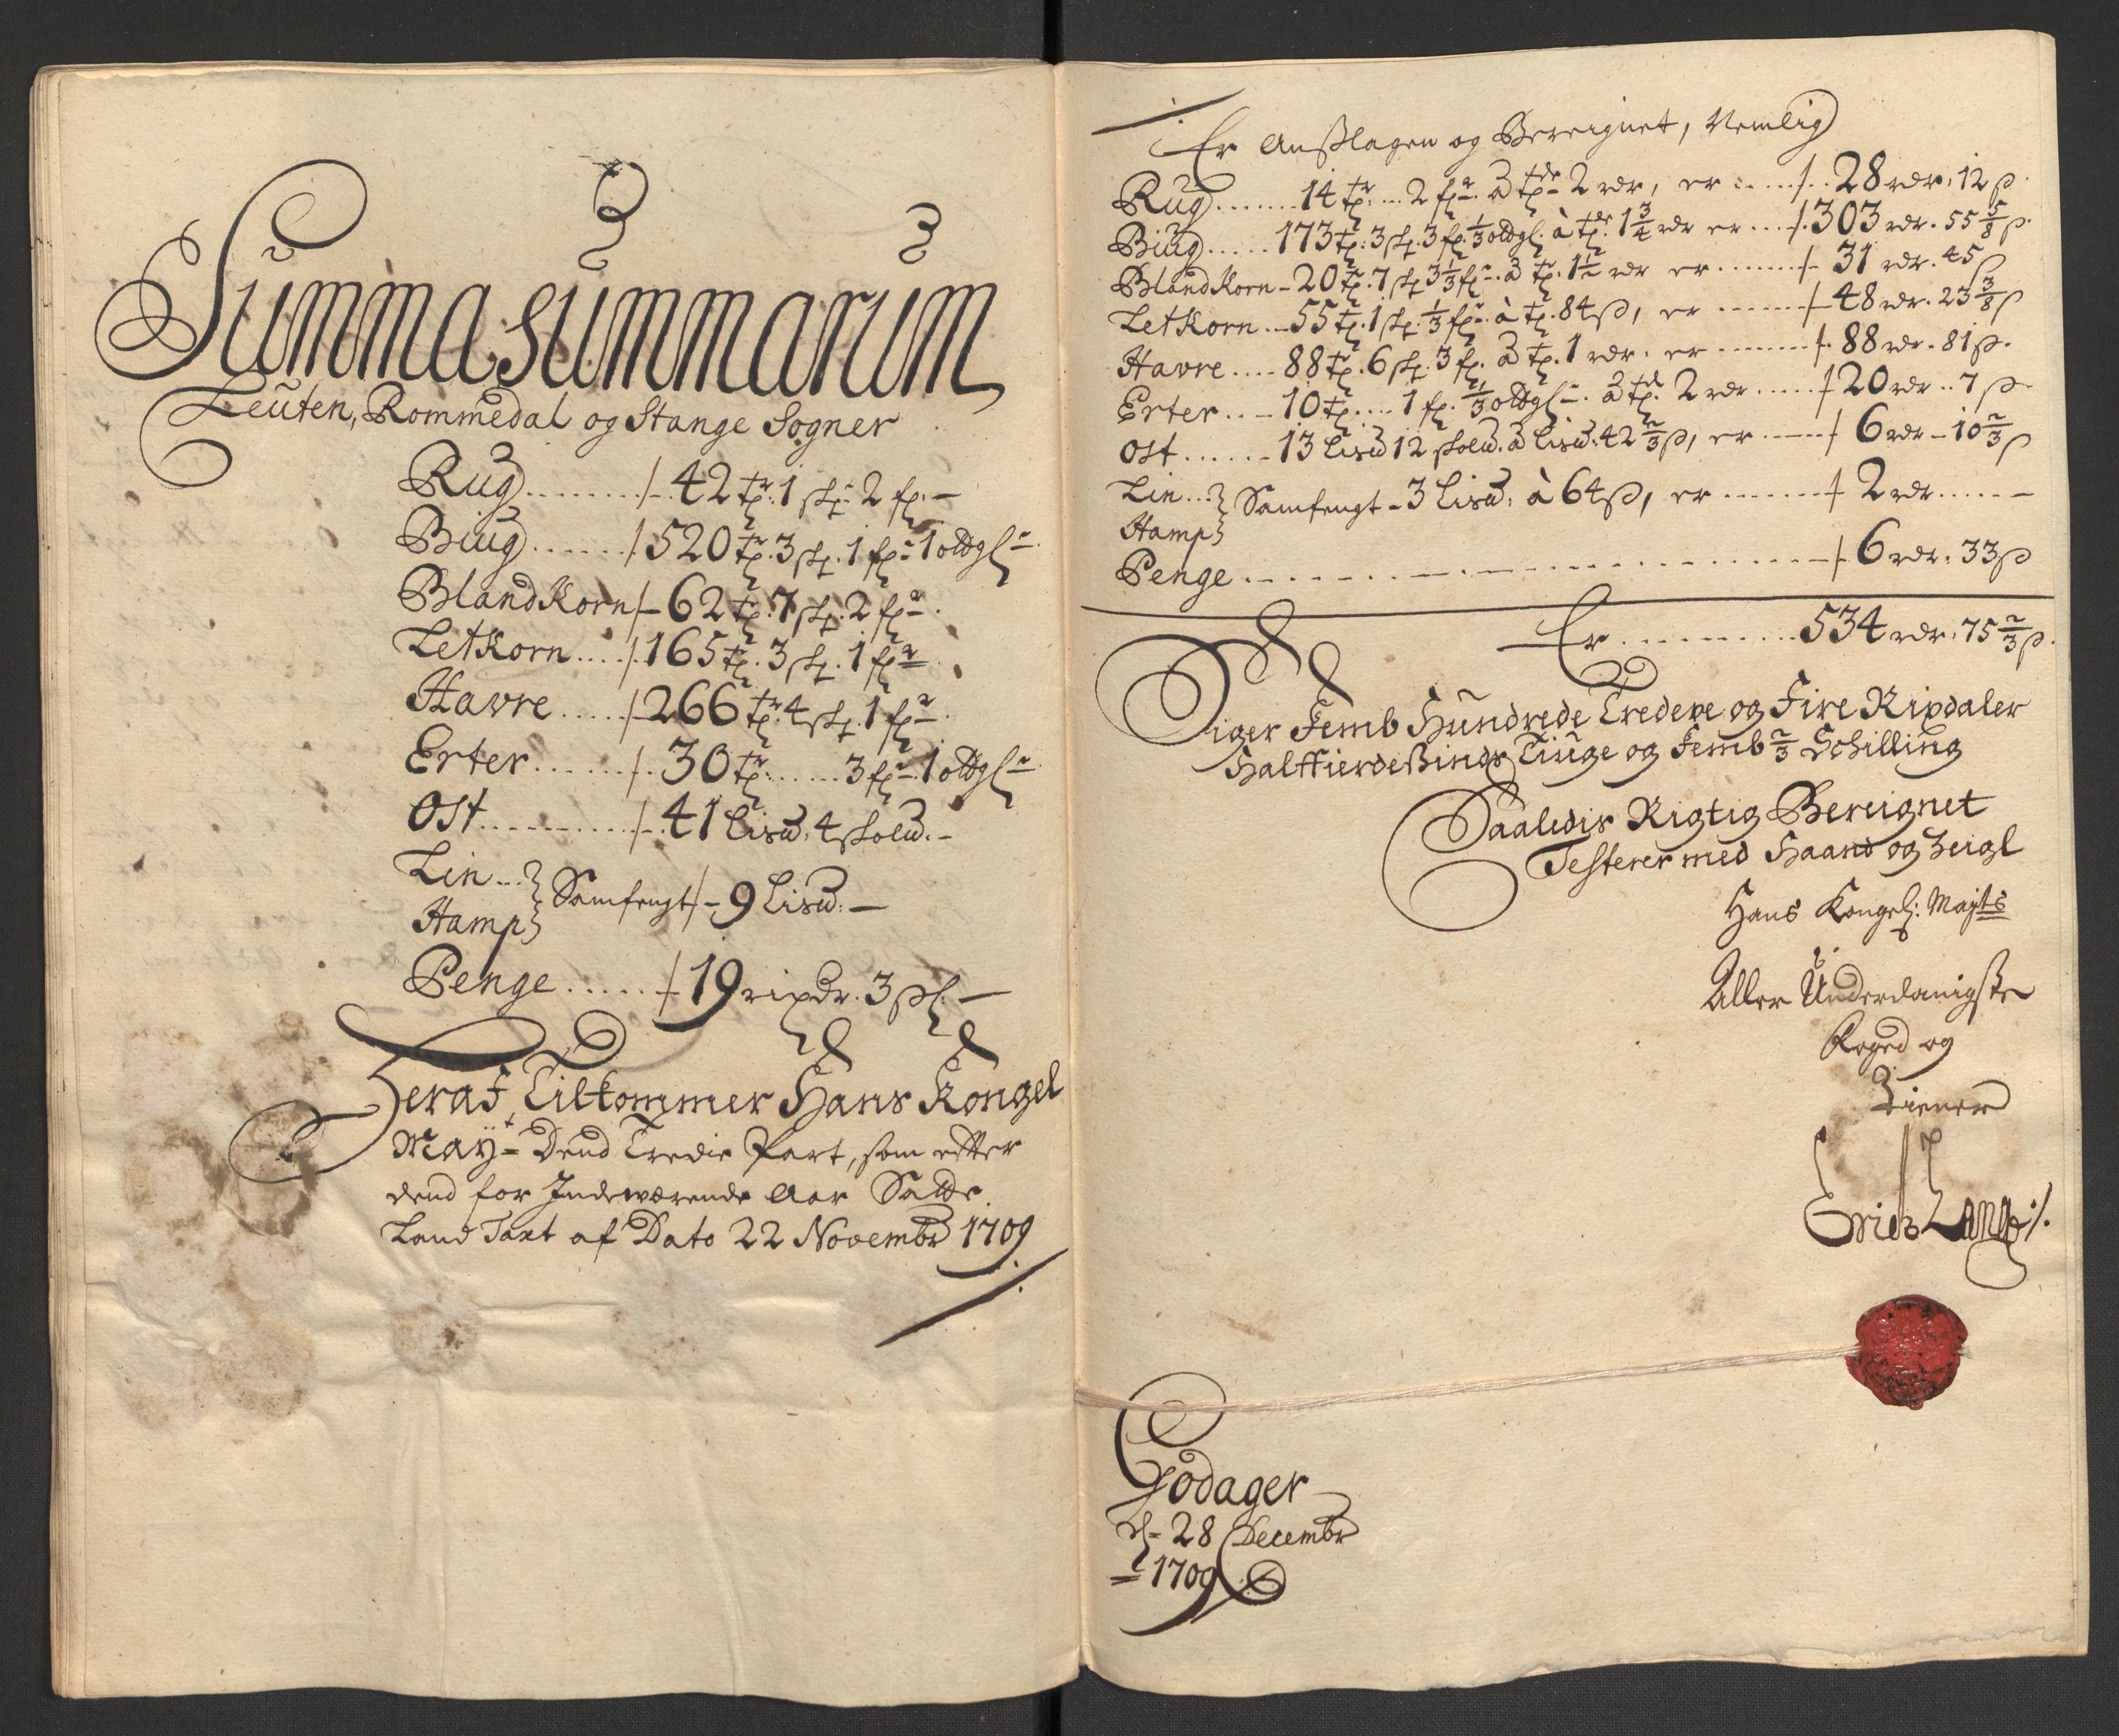 Summa Summarum
Leuten, Rommedal og Stange Sogner
Rug ........ /- 42 tr: 1 skp: 2 fr: -
Biug ...... /. 520 tr. 3 skp. 1 fr: 1 oldgl:
BlandKorn /- 62 tr. 7 skp. 2 fr:
LetKorn .... /. 165 tr. 3 skp. 1 fr:
Havre ..... /- 266 tr. 4 skp. 1 fr:
Erter ...... /. 30 tr: ...... 3 fr: 1 oldgl:
Ost ......... /- 41 Lis℔: 4 skol℔. -
Lin ...} Samfengt /- 9 Lis℔: -
Hamp}
Penge ..... /- 19 rixdr. 3 sk: -
Heraf Tilkommer Hans Kongel
Mayt= Dend Tredie Part, som effter
dend for Indeværende Aar Satte
Land Taxt af Dato 22 Novembr 1709
Er Anßlagen og Bereignet, Nemlig
Rug ....... 14 tr: ... 2 fr: à tde 2 rdr, er ..... /. 28 rdr: 12 ß.
Biug ..... 173 tr: 3 skp. 3 fr. 1/3 oldgl. à tde 1 3/4 rdr er ... /. 303 rdr. 55 5/8 ß.
BlandKorn - 20 tr. 7 skp. 3 1/3 fr: à tr. 1 1/2 rdr er ...... /- 31 rdr. 45 ß
LetKorn ... 55 tr. 1 skp. 1/3 fr: à tr. 84 ß, er ...... /- 48 rdr. 23 3/8 ß
Havre .... 88 tr. 6 skp. 3 fr. à tr. 1 rdr. er ...... /. 88 rdr. 81 ß.
Erter ... 10 tr .... 1 fr. 1/3 oldgl: à td. 2 rdr ..... /- 20 rdr .. 7 ß
Ost ...... 13 Lis℔ 12 skol℔. à Lis℔: 42 2/3 ß, er ..... /- 6 rdr - 10 2/3 ß
Lin ...} Samfengt - 3 Lis℔: à 64 ß, er ...... /- 2 rdr ......
Hamp}
Penge ..................... /- 6 rdr: 33 ß
Er ......... 534 rdr. 75 2/3 ß.
Siger Femb Hundrede Tredeve og Fire Rixdaler
Halffierdeßinds Tiuge og Femb 2/3 Schilling
Saaledis Rigtig Bereignet
Testerer med Haand og Zeigl
Hans Kongel: Mayts
Aller Underdanigste
Foged og
Tiener
Erich Lange ./.
Godager
d= 28 Decembr
= 1709